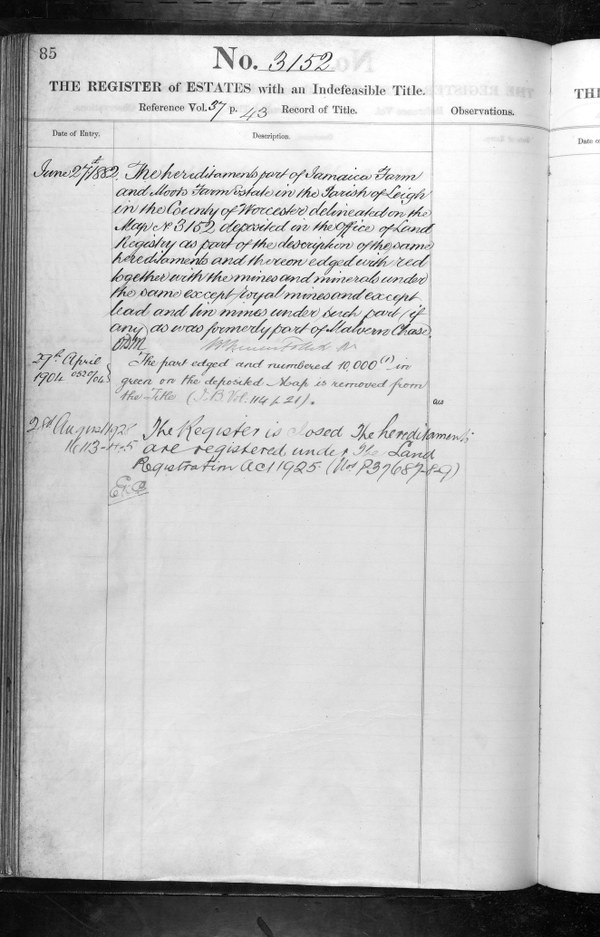 85
No. 3152
THE REGISTER of ESTATES with an Indefeasible Title.
Reference Vol. 37 p. 43 Record of Title.
Observations.
Date of Entry.
Description.
June 27th 1882. The hereditaments part of Jamaica Farm
and Moors Farm Estate in the Parish of Leigh
in the County of Worcester delineated on the
Map No 3152 deposited in the Office of Land
Registry as part of the description of the same
hereditaments and thereon edged with red
together with the mines and minerals under
the same except royal mines and except
lead and tin mines under such part (if
any) as was formerly part of Malvern Chase.
29th April
1904
The part edged and numbered 10,000 (1) in
green on the deposited Map is removed from
the Title (I.B. Vol. 114 p. 21).
August 192
The Register is closed The hereditaments
are registered under The Land
Registration Act 1925 (Nos P37687-8-9)
THE
Date of